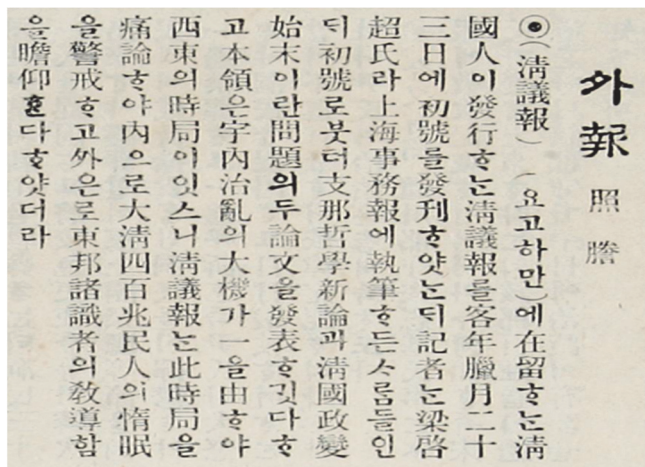 外報 照謄
◉(淸議報) (요고하만)에在留ᄒᆞᄂᆞᆫ淸
國人이發行ᄒᆞᄂᆞᆫ淸議報를客年臘月二十
三日에初號를發刊ᄒᆞ얏ᄂᆞᆫᄃᆡ記者ᄂᆞᆫ梁啓
超氏라上海事務報에執筆ᄒᆞ든ᄉᆞ룸들인
ᄃᆡ初號로붓터支那哲學新論과淸國政變
始末이란問題의두論文을發表ᄒᆞ깃다ᄒᆞ
고本領은宇內治亂의大機가一을由ᄒᆞ야
西東의時局이잇스니淸議報ᄂᆞᆫ此時局을
痛論ᄒᆞ야內으로大淸四百兆民人의惰眠
을警戒ᄒᆞ고外은로東邦諸識者의敎導함
을瞻仰ᄒᆞᆫ다ᄒᆞ얏더라